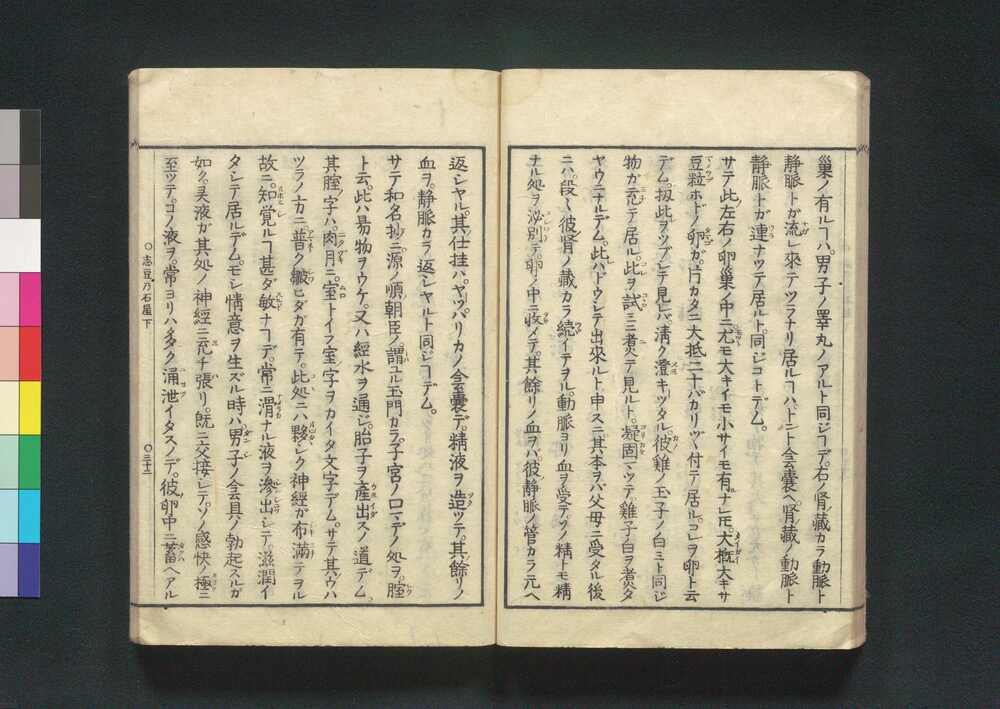 巣ノ有ルヿハ。男子ノ睪丸ノアルト同ジヿデ。右ノ腎ノ藏カラ動脈ト
静脈トガ流レ來テツラナリ居ルヿハ。トント会嚢ヘ。腎藏ノ動脈ト
静脈トガ連ナツテ居ルト。同ジコトデム。
サテ此ノ左右ノ卵巣ノ中ニ。尤モ大キイモ小サイモ有ナレ𪜈。大抵大キサ
豆粒ホドノ卵ガ。片カタニ大抵二十バカリヅヽ付テ居ル。コレヲ卵ト云
デム。扨此ヲツブシテ見レバ。清ク澄キツタル。彼ノ雞ノ玉子ノ白ミト同ジ
物ガ充テ居ル。此ヲ試ミニ煑テ見ルト。凝固ツテ。雞子白ヲ煑タ
ヤウニナルデム。此ハドウシテ出來ルト申スニ。其本ヲバ父母ニ受タル後
ニハ。段〻彼腎ノ藏カラ続イテヲル。動脈ヨリ血ヲ受テ。ソノ精トモ精
ナル処ヲ泌別テ。卵ノ中ニ收メテ。其餘リノ血ヲバ。彼静脈ノ管カラ元ヘ
返シヤル。其仕挂ハ。ヤツパリカノ会嚢デ。精液ヲ造ツテ。其餘リノ
血ヲ。静脈カラ返シヤルト同ジヿデム。
サテ和名抄ニ。源ノ順朝臣ノ謂ユル玉門カラ。子宮ノ口マデノ処ヲ。膣
ト云。此ハ昜物ヲウケ。又ハ經水ヲ通ジ。胎子ヲ産出スノ道デム。
其膣ノ字ハ。肉月ニ。室トイフ室ノ字ヲカイタ文字デアム。サテ其ウハ
ツラノ方ニ普ク皺ヒダガ有テ。此処ニハ夥シク神經ガ布満テヲル
故ニ。知覚ルヿ甚ダ敏ナヿデ。常ニ滑ナル液ヲ滲出シテ。滋潤イ
タシテ居ルデム。モシ情意ヲ生ズル時ハ。男子ノ会具ノ勃起スルガ
如ク。灵液ガ其処ノ神經ニ充チ張リ。既ニ交接シテ。ソノ感快ノ極ニ
至ツテ。コノ液ヲ。常ヨリハ多ク涌泄イタスノデ。彼卵中ニ蓄ヘアル
○志豆乃石屋下
○三十二